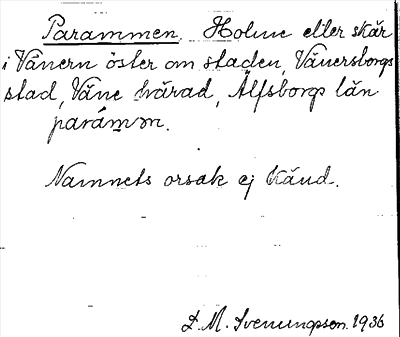 Parammen. Holme eller skär
i Vänern öster om staden, Vänersborgs
stad, Väne härad, Älfsborgs län
parám̥ən.
Namnets orsak ej känd.
D. M. Svenungsson. 1936